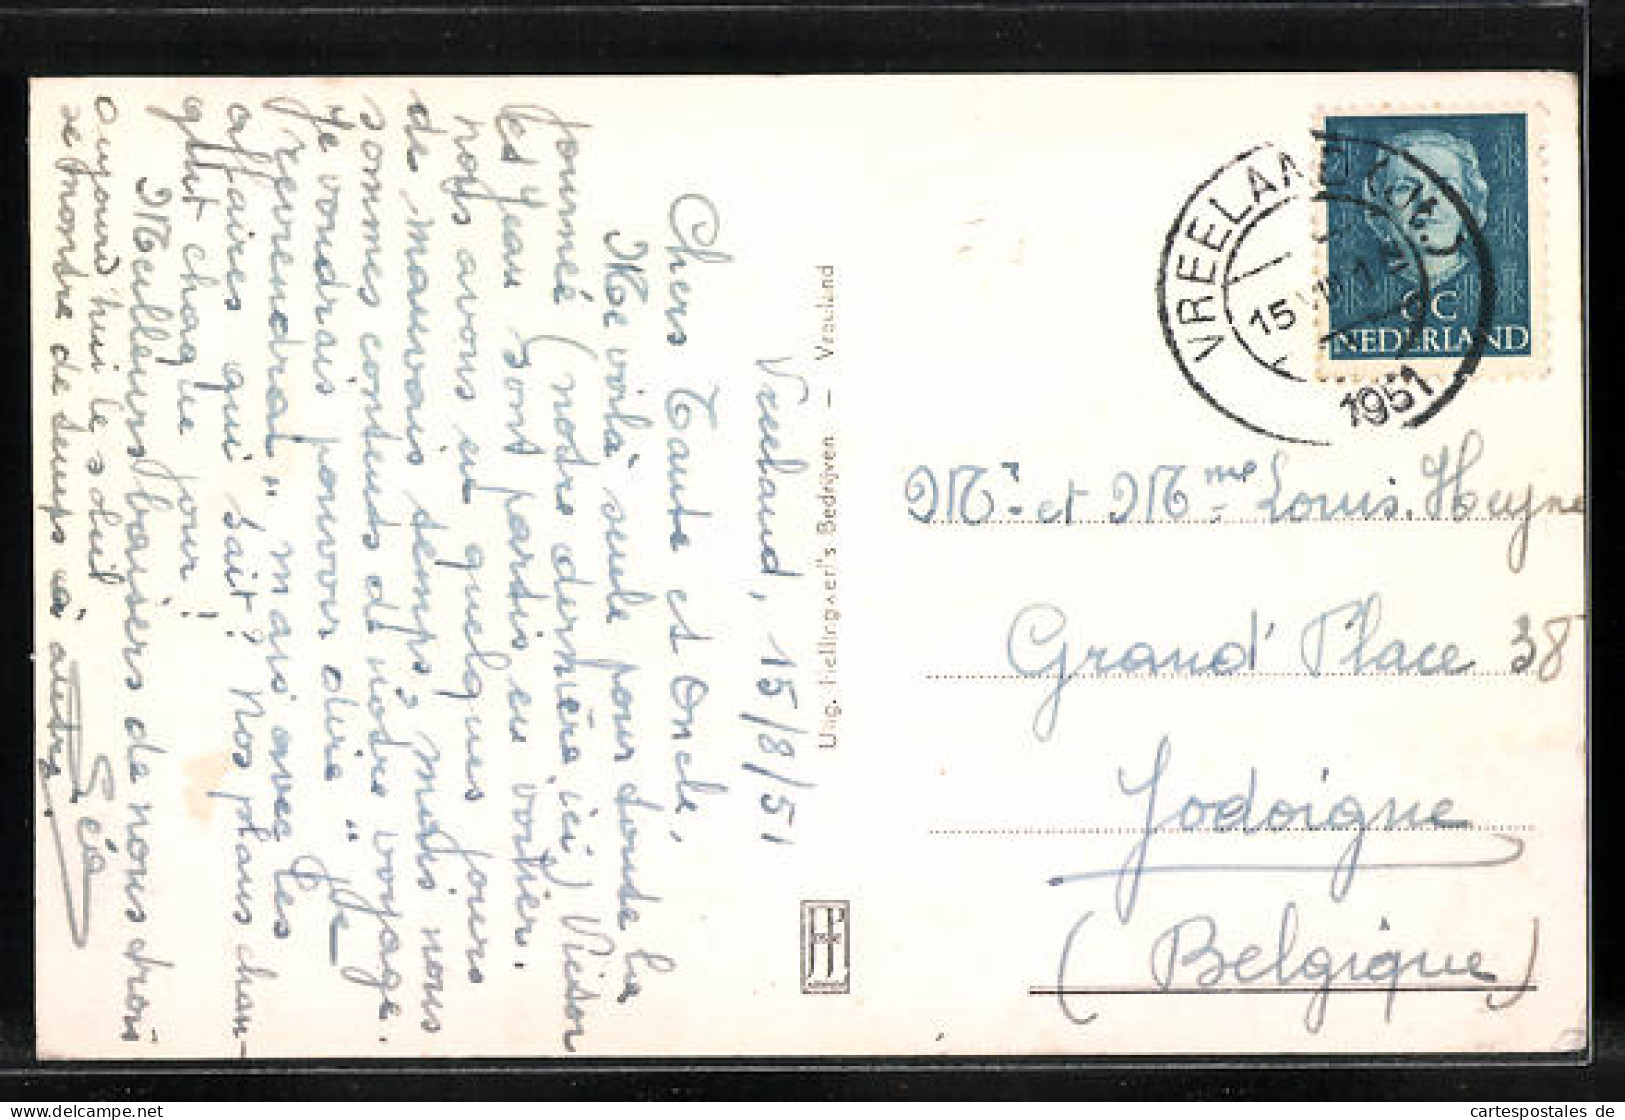 Vreeland, 15/8/51
Chers Tante et Oncle,
Me voilà seule pour toute la
journée (notre dernière ici) Victor
et Jean sont partis en voilier.
nous avons eu quelques jours
de mauvais temps, mais nous
sommes contents de notre voyage.
Je voudrais pouvoir dire "Je
reviendrai" mais avec les
affaires qui sait? Nos plans chan-
gent chaque jour!
Meilleurs baisers de nous trois
aujourd'hui le soleil
se montre de temps à autre.
Uitg. Hellingwerf's Bedrijven — Vreeland
VREELAND (UTR.)
15 VIII
1951
6 C
NEDERLAND
Mr. et Mme. Louis. Heyne
Grand' Place 38
Jodoigne
(Belgique)
cartespostales de